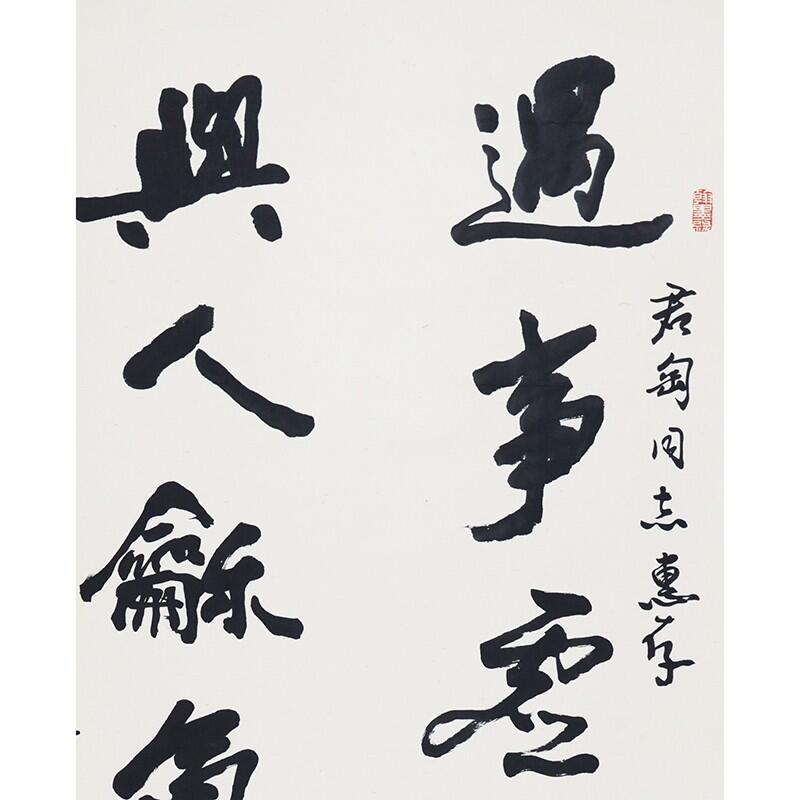 君匋同志惠存
遇事虛
與人龢